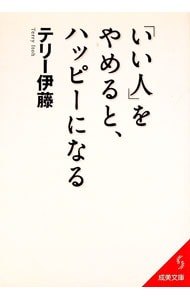 「いい人」を
やめると、
ハッピーになる
テリー伊藤
Terry Itoh
成美文庫